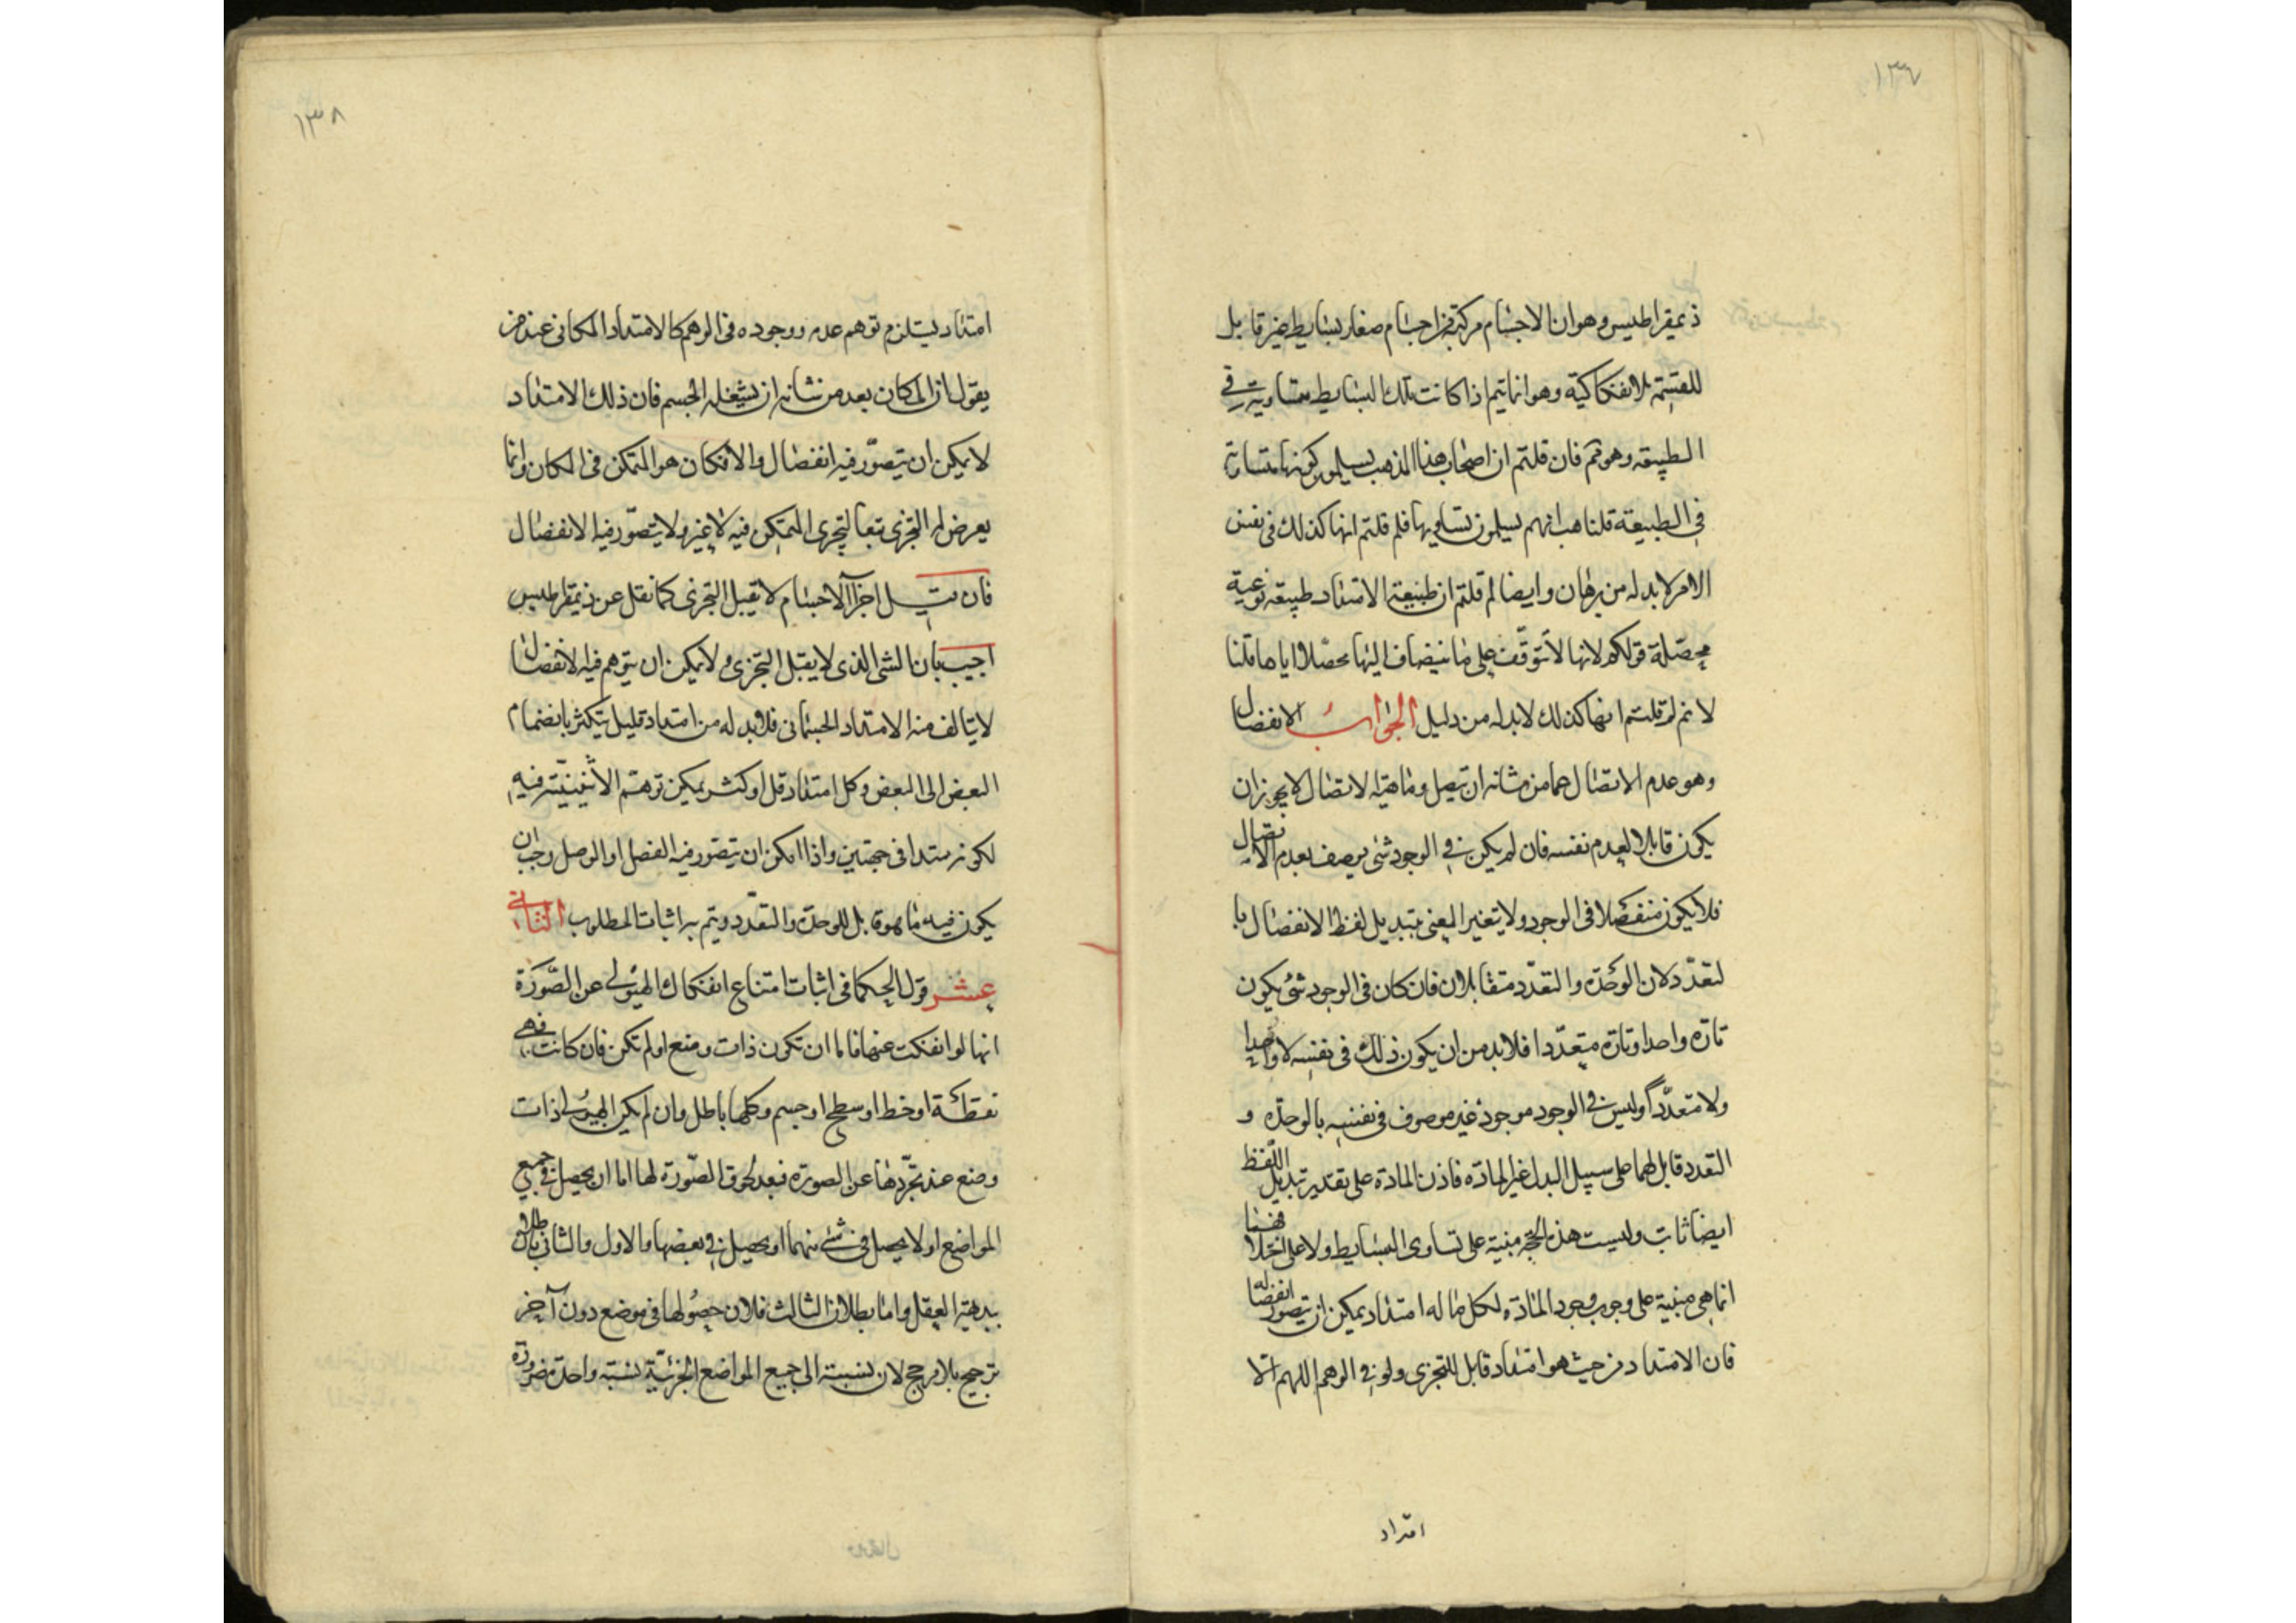 ١٣٧
ذيمقراطيس وهو ان الاجسام مركبة من اجسام صغار بسايط غير قابل
للقسمة الانفكاكية وهو انما يتم اذا كانت تلك البسايط متساوية في
الطبيعة وهو ثم فان قلتم ان اصحاب هذا المذهب يسلمون كونها متساوية
في الطبيعة قلنا هب انهم يسلمون تساويها فلم قلتم انها كذلك في نفس
الامر لا بد له من برهان وايضا لم قلتم ان طبيعة الامتداد طبيعة نوعية
محصلة قولكم لانها لا تتوقف على ما ينضاف اليها محصلا اياها قلنا
لا نم لم قلتم انها كذلك لا بد له من دليل الجواب الانفصال
وهو عدم الاتصال عما من شانه ان يتصل وماهية الاتصال لا يجوز ان
يكون قابلا لعدم نفسه فان لم يكن في الوجود شئ يوصف بعدم الاتصال
فلا يكون منفصلا في الوجود ولا يتغير المعنى بتبديل لفظ الانفصال با
لتعدد لان الوحدة والتعدد متقابلان فان كان في الوجود شئ يكون
تارة واحدا وتارة متعددا فلا بد من ان يكون ذلك في نفسه لا واحدا
ولا متعددا وليس في الوجود موجود غير موصوف في نفسه بالوحدة و
التعدد قابل لهما على سبيل البدل غير المادة فاذن المادة على تقدير تبديل اللفظ
ايضا ثابت وليست هذه الحجة مبنية على تساوى البسايط ولا على اختلافها
انما هي مبنية على وجوب وجود المادة لكل ما له امتداد يمكن ان يتصور انفصاله
فان الامتداد من حيث هو امتداد قابل للتجزى ولو في الوهم اللهم الا
امتداد
١٣٨
امتداد يستلزم توهم عدمه ووجوده في الوهم كالامتداد المكانى عند من
يقول ان المكان بعد من شانه ان يشغله الجسم فان ذلك الامتداد
لا يمكن ان يتصور فيه انفصال والانكان هو المتمكن في المكان وانما
يعرض له التجزى تبعا لتجزى المتمكن فيه لا غير ولا يتصور فيه الانفصال
فان قيل اجزآ الاجسام لا تقبل التجزى كما نقل عن ذيمقراطيس
اجيب بان الشى الذى لا يقبل التجزى ولا يمكن ان يتوهم فيه الانفصال
لا يتالف منه الامتداد الجسمانى فلا بد له من امتداد قليل يتكثر بانضمام
البعض الى البعض وكل امتداد قل او كثر يمكن توهم الاثنينية فيه
لكونه ممتدا في جهتين واذا امكن ان يتصور فيه الفصل او الوصل وجب ان
يكون فيه ما هو قابل للوحدة والتعدد ويتم به اثبات المطلوب الثانى
عشر قول الحكما في اثبات امتناع انفكاك الهيولى عن الصورة
انها لو انفكت عنها فاما ان تكون ذات وضع او لم تكن فان كانت فهي
نقطة او خط او سطح او جسم وكلها باطل وان لم يكن الهيولى ذات
وضع عند تجردها عن الصورة فبعد لحوق الصورة لها اما ان يحصل في جميع
المواضع او لا يحصل في شئ منهما او يحصل في بعضها والاول والثانى باطلان
ببديهة العقل واما بطلان الثالث فلان حصولها في موضع دون آخر
ترجيح بلا مرجح لان نسبته الى جميع المواضع الجزئية نسبة واحدة ضرورة